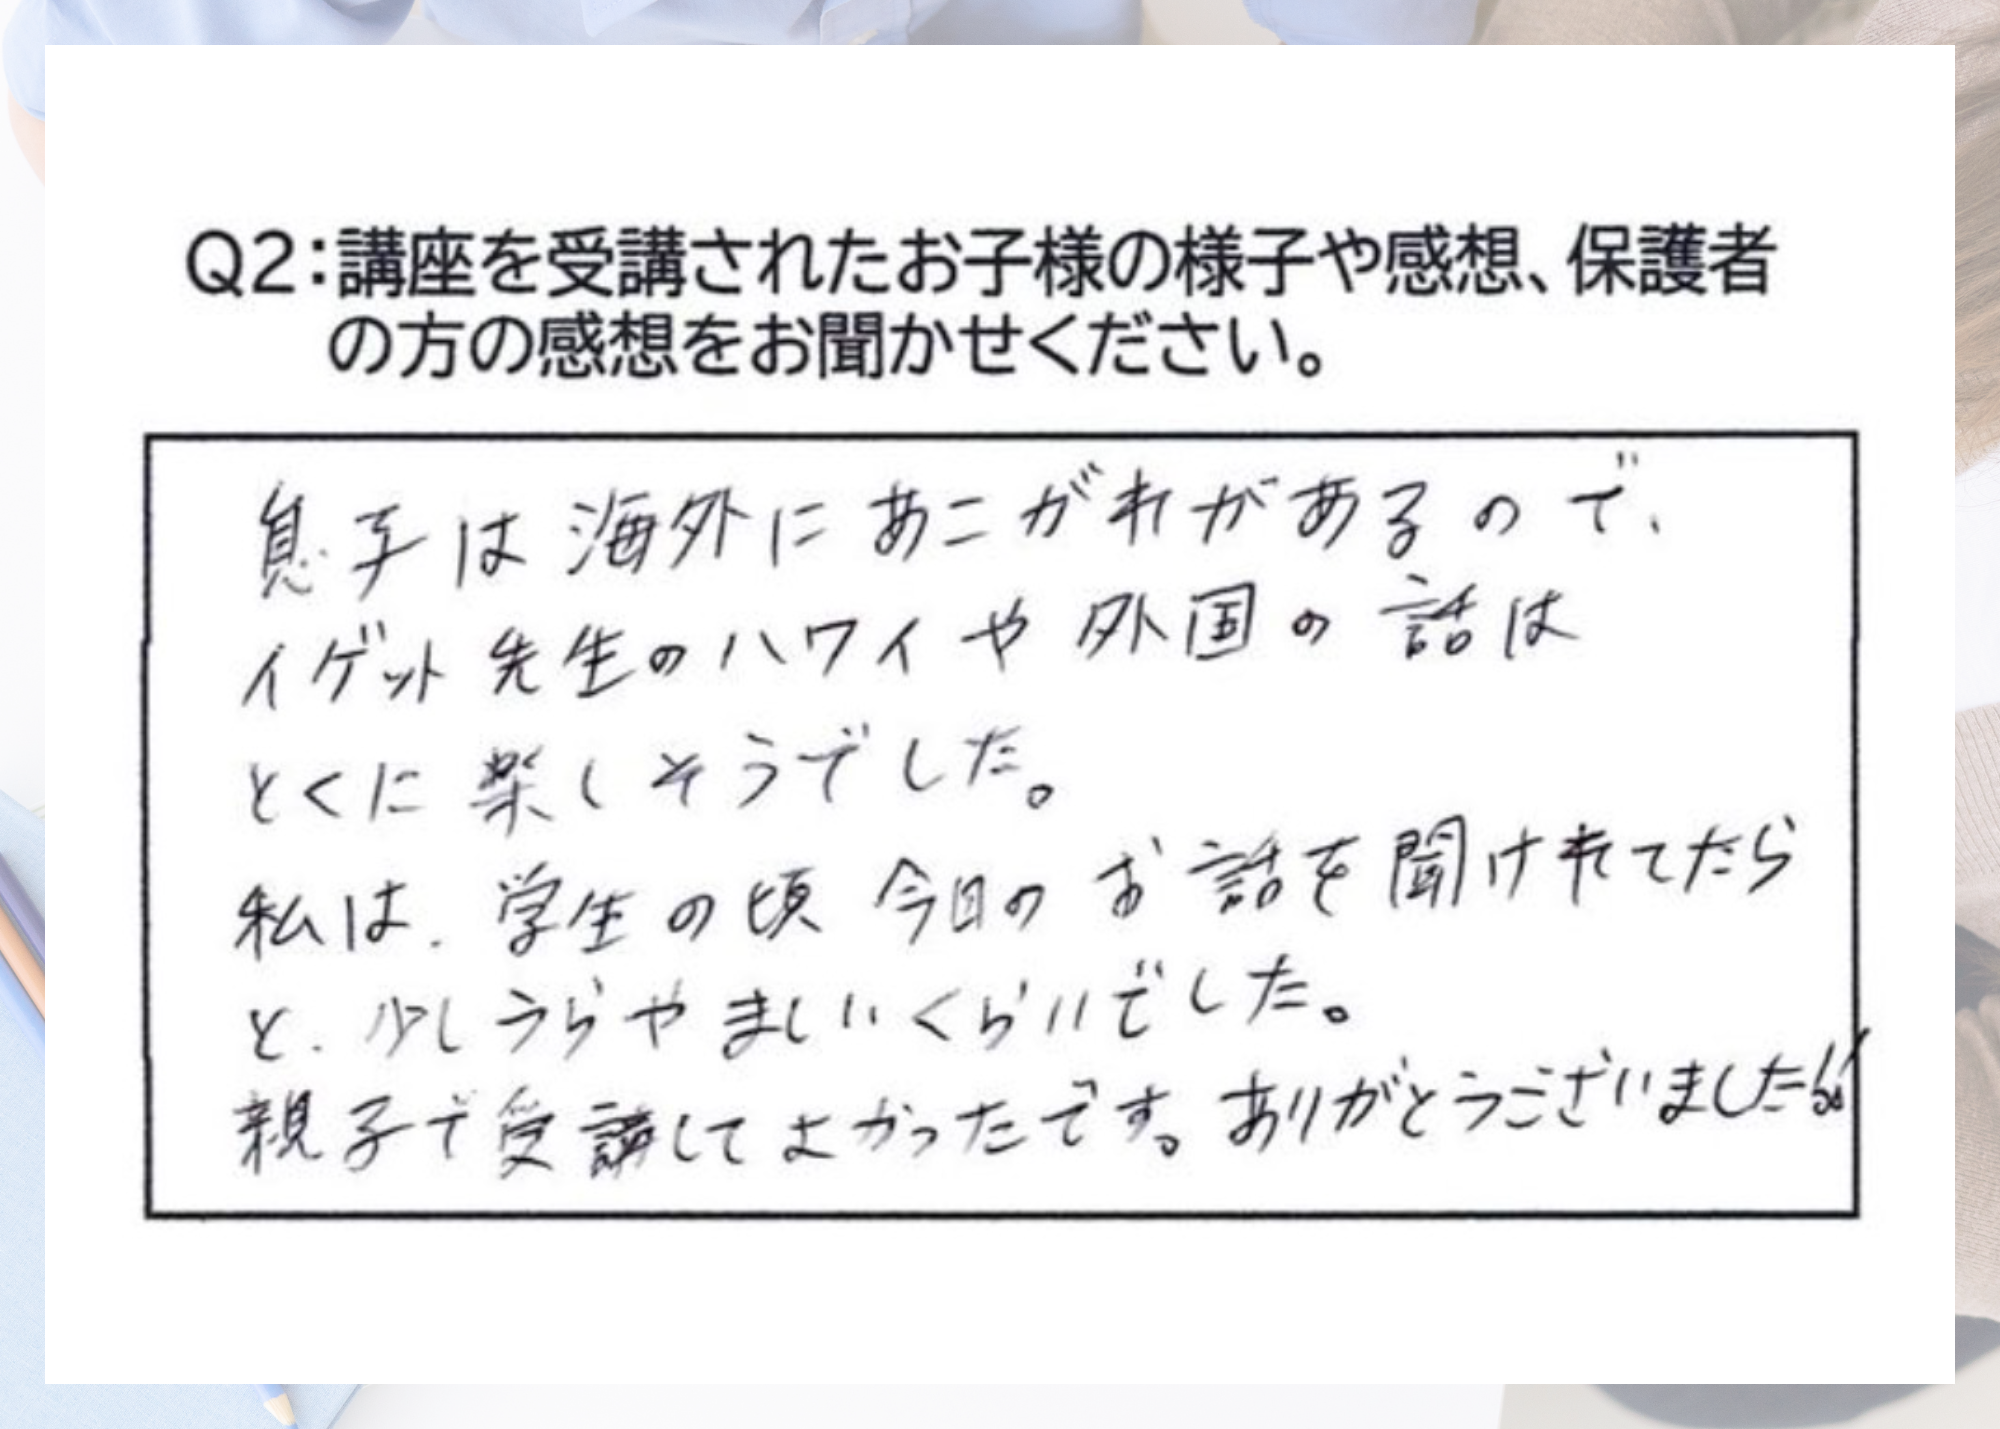 Q2:講座を受講されたお子様の様子や感想、保護者
の方の感想をお聞かせください。
息子は海外にあこがれがあるので、
イゲット先生のハワイや外国の話は
とくに楽しそうでした。
私は、学生の頃 今日のお話を聞けれてたら
と、少しうらやましいくらいでした。
親子で受講してよかったです。ありがとうございました